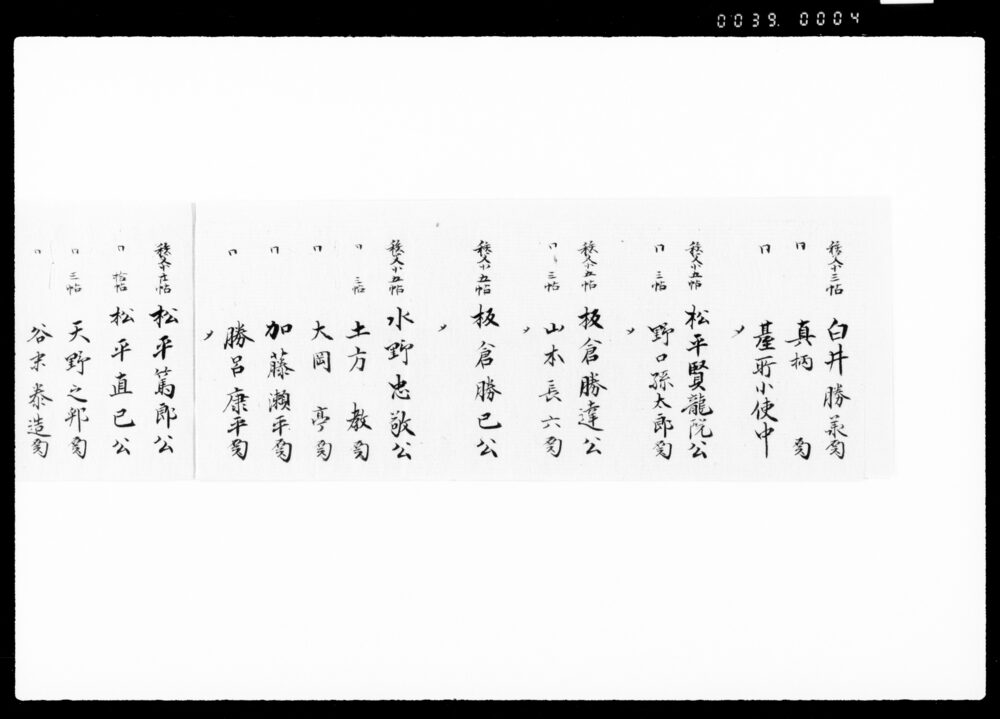 0039. 0004
秩父小三帖 白井勝美殿
口 真柄 殿
口 臺所小使中
〆
秩父小五帖 松平賢龍院公
口 三帖 野口孫太郎殿
〆
秩父小五帖 板倉勝達公
口 三帖 山本長六殿
〆
秩父小五帖 板倉勝已公
〆
秩父小五帖 水野忠敬公
口 三帖 土方 教殿
口 大岡 亭殿
口 加藤瀬平殿
口 勝呂康平殿
〆
秩父小五帖 松平篤郎公
口 拾帖 松平直已公
口 三帖 天野之邦殿
口 谷 泰造殿